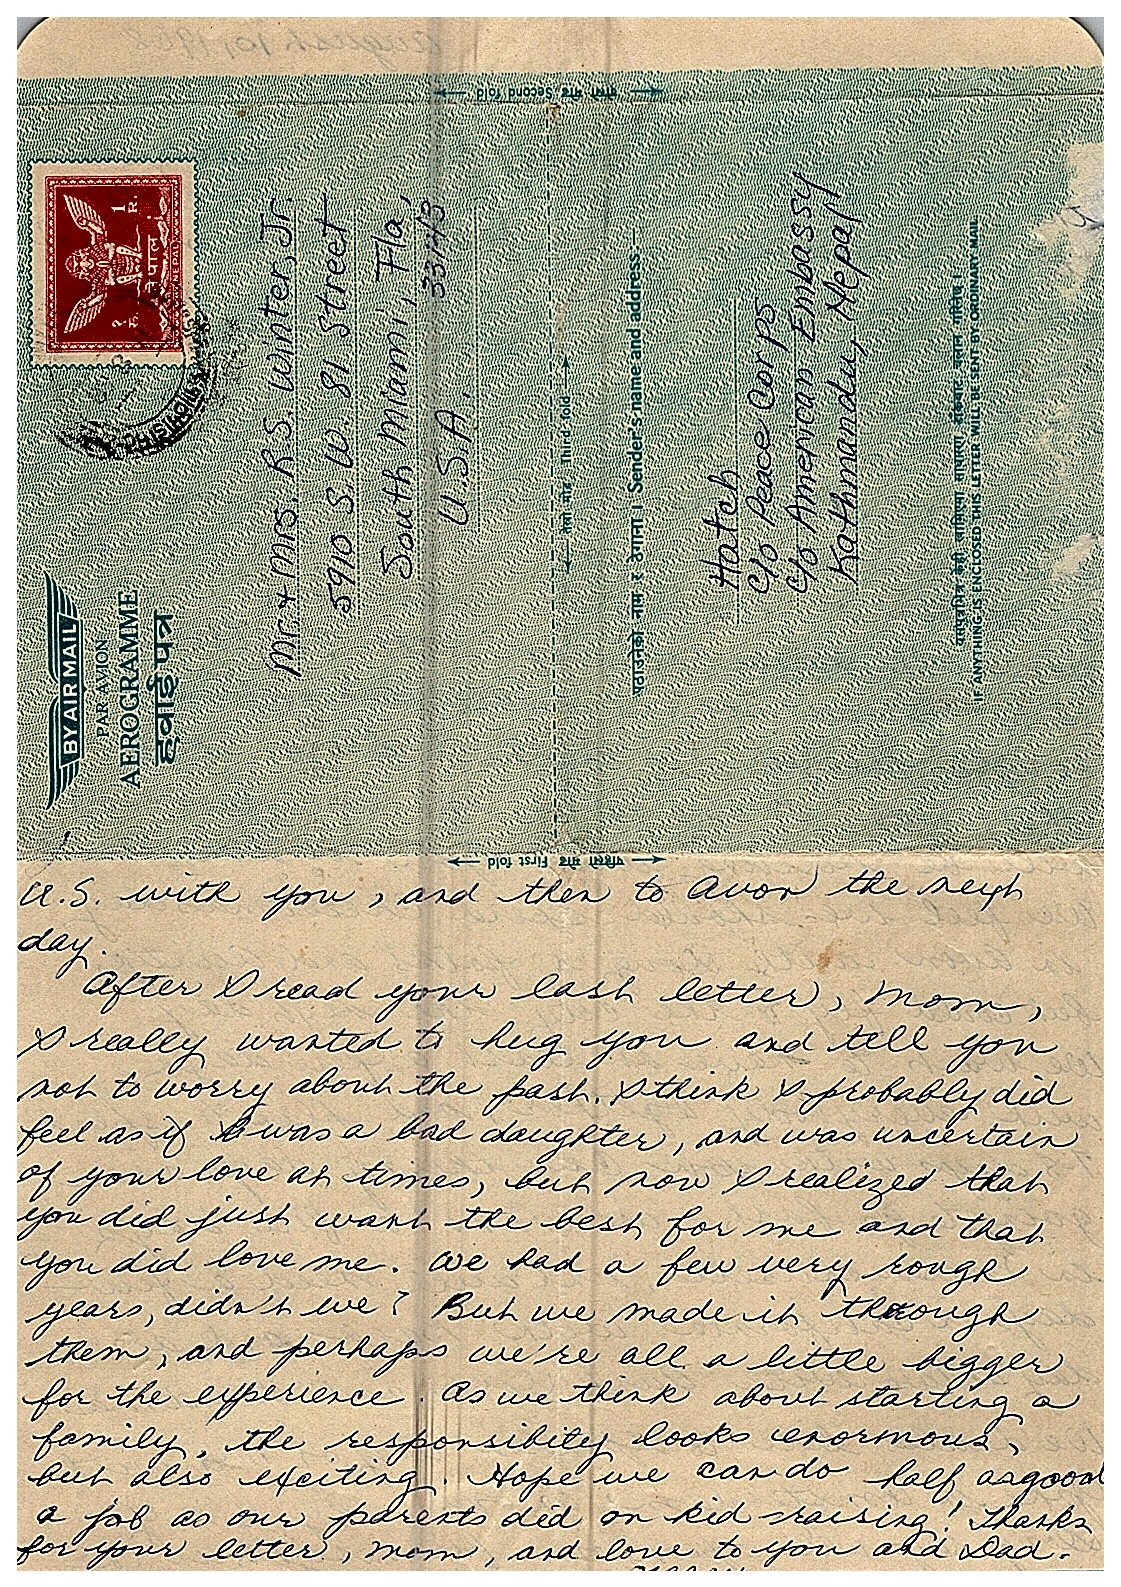 August 10, 1968
वाली मोड Second fold
BY AIR MAIL
PAR AVION
AEROGRAMME
हवाई पत्र
१ रु.
नेपाल
NEPAL
1 R.
Mr. & Mrs. R.S. Winter, Jr.
5910 S.W. 81 Street
South Miami, Fla,
33143
U.S.A.
Third fold
पठाउनेको नाम र ठेगाना । Sender's name and address
Hatch
c/o Peace Corps
c/o American Embassy
Kathmandu, Nepal
IF ANYTHING IS ENCLOSED THIS LETTER WILL BE SENT BY ORDINARY MAIL
पहिलो मोड First fold
U.S. with you, and then to Avon the next
day.
After I read your last letter, Mom,
I really wanted to hug you and tell you
not to worry about the past. I think I probably did
feel as if I was a bad daughter, and was uncertain
of your love at times, but now I realized that
you did just want the best for me and that
you did love me. We had a few very rough
years, didn't we? But we made it through
them, and perhaps we're all a little bigger
for the experience. As we think about starting a
family, the responsibity looks enormous,
but also exciting. Hope we can do half as good
a job as our parents did on kid raising! Thanks
for your letter, Mom, and love to you and Dad.